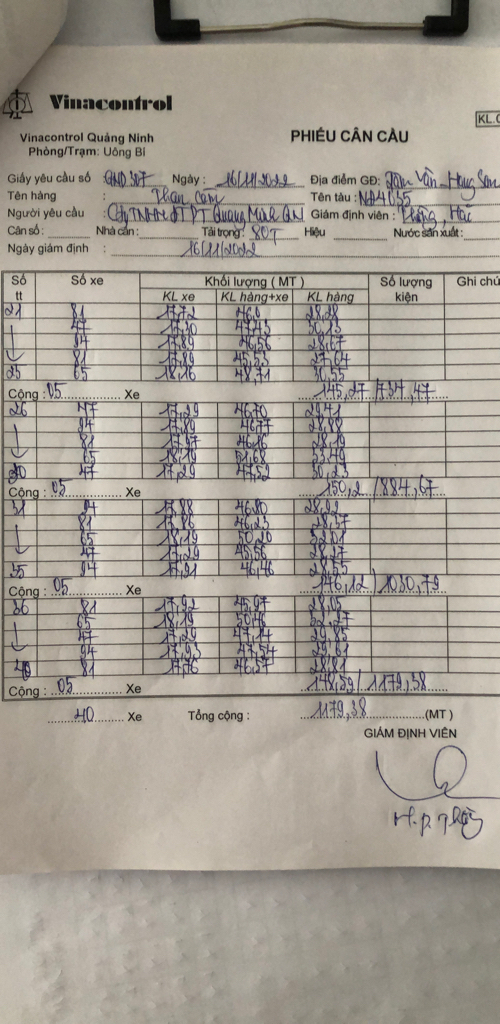 Vinacontrol
KL.
Vinacontrol Quảng Ninh
Phòng/Trạm: Uông Bí
PHIẾU CÂN CẦU
Giấy yêu cầu số Ngày : 16/11/2022 Địa điểm GĐ:
Tên hàng : Than cám Tên tàu :
Người yêu cầu : Cty TNHH Quang Minh QN Giám định viên :
Cân số : Nhà cân : Tải trọng : 80T Hiệu Nước sản xuất :
Ngày giám định : 16/11/2022
Số tt Số xe Khối lượng ( MT ) Số lượng kiện Ghi chú
KL xe KL hàng+xe KL hàng
21 81 17,72 28,28
47 17,30 47,43 30,13
94 17,89 46,56 28,67
81 17,89 45,53 27,64
25 65 18,16 48,71 30,55
Cộng : 05 Xe 145,27 / 734,47
26 47 17,29 46,70 29,41
94 17,89 46,77 28,88
81 17,97 46,16 28,19
65 18,19 51,68 33,49
30 47 17,29 47,52 30,23
Cộng : 05 Xe 150,2 / 884,67
31 94 17,88 46,80 28,92
81 17,86 46,23 28,37
65 18,19 50,20 32,01
47 17,29 45,56 28,27
35 94 17,91 46,46 28,55
Cộng : 05 Xe 146,12 / 1030,79
36 81 17,92 45,97 28,05
65 18,19 50,46 32,27
47 17,29 47,14 29,85
94 17,93 47,54 29,61
40 81 17,76 46,57 28,81
Cộng : 05 Xe 148,59 / 1179,38
40 Xe Tổng cộng : 1179,38 (MT )
GIÁM ĐỊNH VIÊN